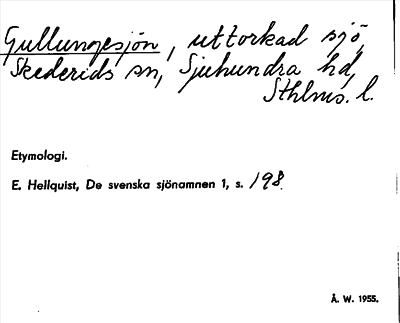 Gullungesjön, uttorkad sjö,
Skederids sn, Sjuhundra hd,
Sthlms. l.
Etymologi.
E. Hellquist, De svenska sjönamnen 1, s. 198.
Å. W. 1955.